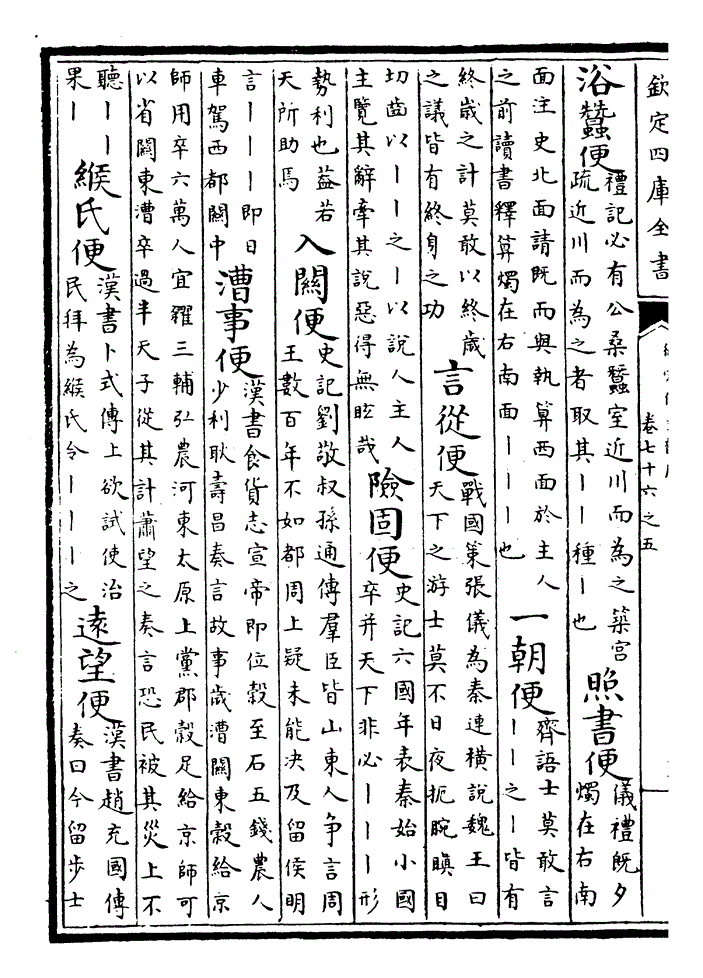 欽定四庫全書
卷七十六之五
浴蠶便
禮記必有公桑蠶室近川而為之築宮
疏近川而為之者取其丨丨種丨也
照書便
儀禮既夕
燭在右南
面注史北面請既而與執算西面於主人
之前讀書釋算燭在右南面丨丨丨也
一朝便
齊語士莫敢言
丨丨之丨皆有
終歲之計莫敢以終歲
之議皆有終身之功
言從便
戰國策張儀為秦連橫說魏王曰
天下之游士莫不日夜扼腕瞋目
切齒以丨丨之丨以說人主人
主覽其辭牽其說惡得無眩哉
險固便
史記六國年表秦始小國
卒并天下非必丨丨丨形
勢利也葢若
天所助焉
入關便
史記劉敬叔孫通傳羣臣皆山東人争言周
王數百年不如都周上疑未能决及留侯明
言丨丨丨即日
車駕西都關中
漕事便
漢書食貨志宣帝即位穀至石五錢農人
少利耿壽昌奏言故事歲漕關東穀給京
師用卒六萬人宜糴三輔弘農河東太原上黨郡穀足給京師可
以省關東漕卒過半天子從其計蕭望之奏言恐民被其災上不
聽丨丨
果丨
緱氏便
漢書卜式傳上欲試使治
民拜為緱氏令丨丨丨之
遠望便
漢書趙充國傳
奏曰今留步士